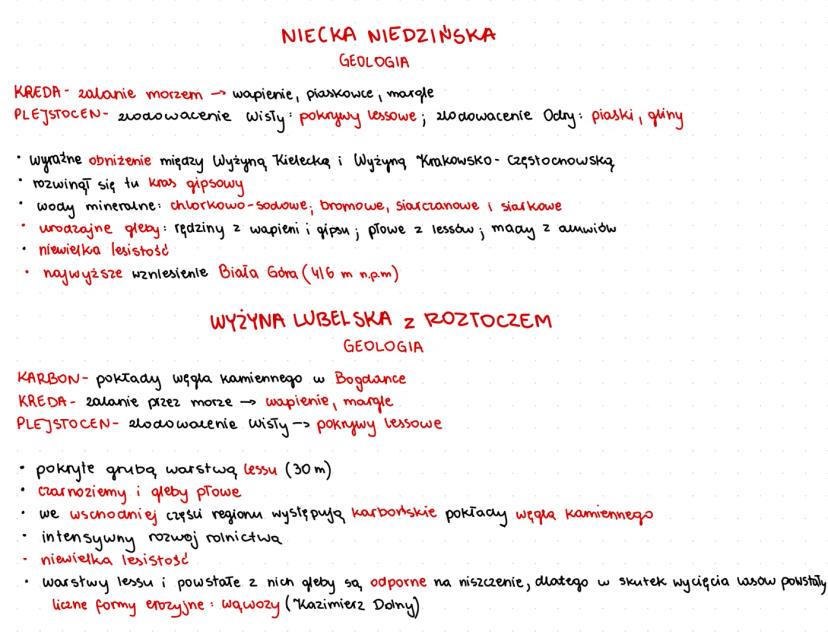 NIECKA NIEDZIŃSKA
GEOLOGIA
KREDA - zalanie morzem → wapienie, piaskowce, margle
PLEJSTOCEN - zlodowacenie Wisły: pokrywy lessowe; zlodowacenie Odry: piaski, gliny
• wyraźne obniżenie między Wyżyną Kielecką i Wyżyną Krakowsko - Częstochowską
• rozwinął się tu kras gipsowy
• wody mineralne: chlorkowo-sodowe, bromowe, siarczanowe i siarkowe
• urodzajne gleby: rędziny z wapieni i gipsu; płowe z lessów; mady z aluwiów
• niewielka lesistość
• najwyższe wzniesienie Biała Góra (416 m n.p.m)
WYŻYNA LUBELSKA z ROZTOCZEM
GEOLOGIA
KARBON - pokłady węgla kamiennego w Bogdance
KREDA - zalanie przez morze → wapienie, margle
PLEJSTOCEN - zlodowacenie Wisły → pokrywy lessowe
• pokryte grubą warstwą lessu (30 m)
• czarnoziemy i gleby płowe
• we wschodniej części regionu występują karbońskie pokłady węgla kamiennego
• intensywny rozwój rolnictwa
- niewielka lesistość
• warstwy lessu i powstałe z nich gleby są odporne na niszczenie, dlatego w skutek wycięcia lasów powstały
liczne formy erozyjne: wąwozy (Kazimierz Dolny)